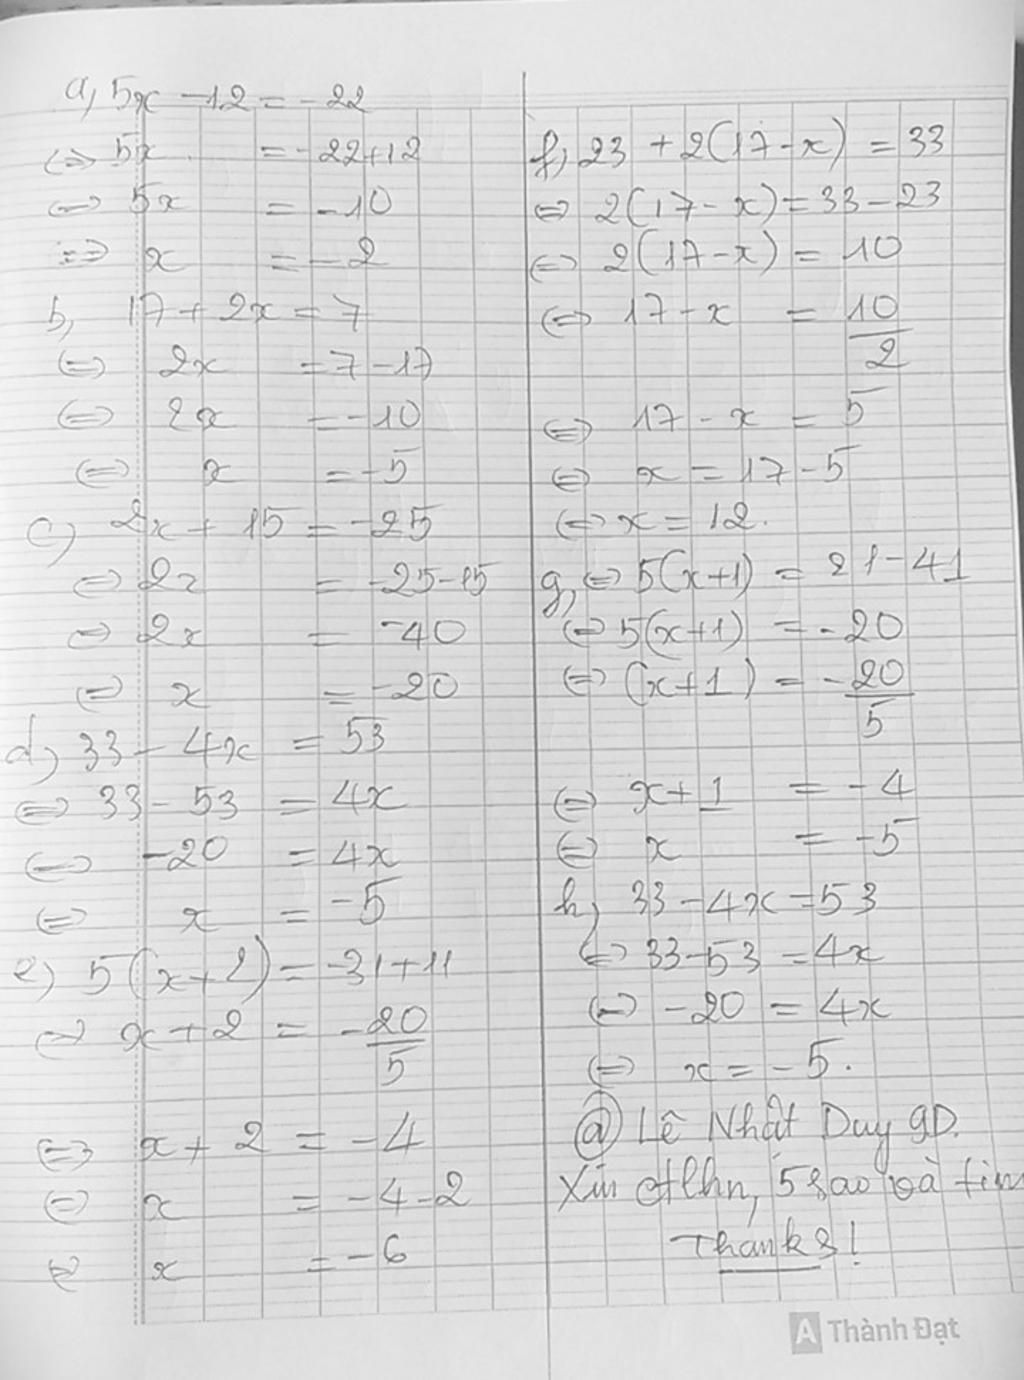 a, 5x - 12 = -22
⇔ 5x = -22+12
⇔ 5x = -10
⇔ x = -2
b, 17 + 2x = 7
⇔ 2x = 7 - 17
⇔ 2x = -10
⇔ x = -5
c) 2x + 15 = -25
⇔ 2x = -25-15
⇔ 2x = -40
⇔ x = -20
d) 33 - 4x = 53
⇔ 33 - 53 = 4x
⇔ -20 = 4x
⇔ x = -5
e) 5(x+2) = -31+11
⇔ x + 2 = -20/5
⇔ x + 2 = -4
⇔ x = -4-2
⇔ x = -6
f) 23 + 2(17-x) = 33
⇔ 2(17-x) = 33-23
⇔ 2(17-x) = 10
⇔ 17-x = 10/2
⇔ 17 - x = 5
⇔ x = 17-5
⇔ x = 12.
g, ⇔ 5(x+1) = 21-41
⇔ 5(x+1) = -20
⇔ (x+1) = -20/5
⇔ x+1 = -4
⇔ x = -5
h) 33-4x=53
⇔ 33-53 = 4x
⇔ -20 = 4x
⇔ x = -5.
@ Lê Nhất Duy 9D.
Xin ctlhn, 5 sao và tim
Thanks!
A Thành Đạt